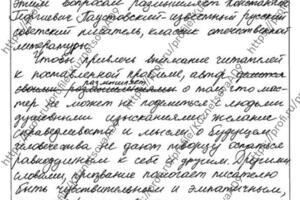 этими вопросам размышляет Константин
Георгиевич Паустовский - известный русский
советский писатель, классик отечественной
литературы.
Чтобы привлечь внимание читателей
к поставленной проблеме, автор
размышляет
о том, что мас-
тер не может не поделиться с людьми
духовными изысканиями: желание
справедливости и мысль о будущем
человечества не дают творцу остаться
равнодушным к себе и другим. Другими
словами, призвание помогает писателю
быть чувствительным и эмпатичным,